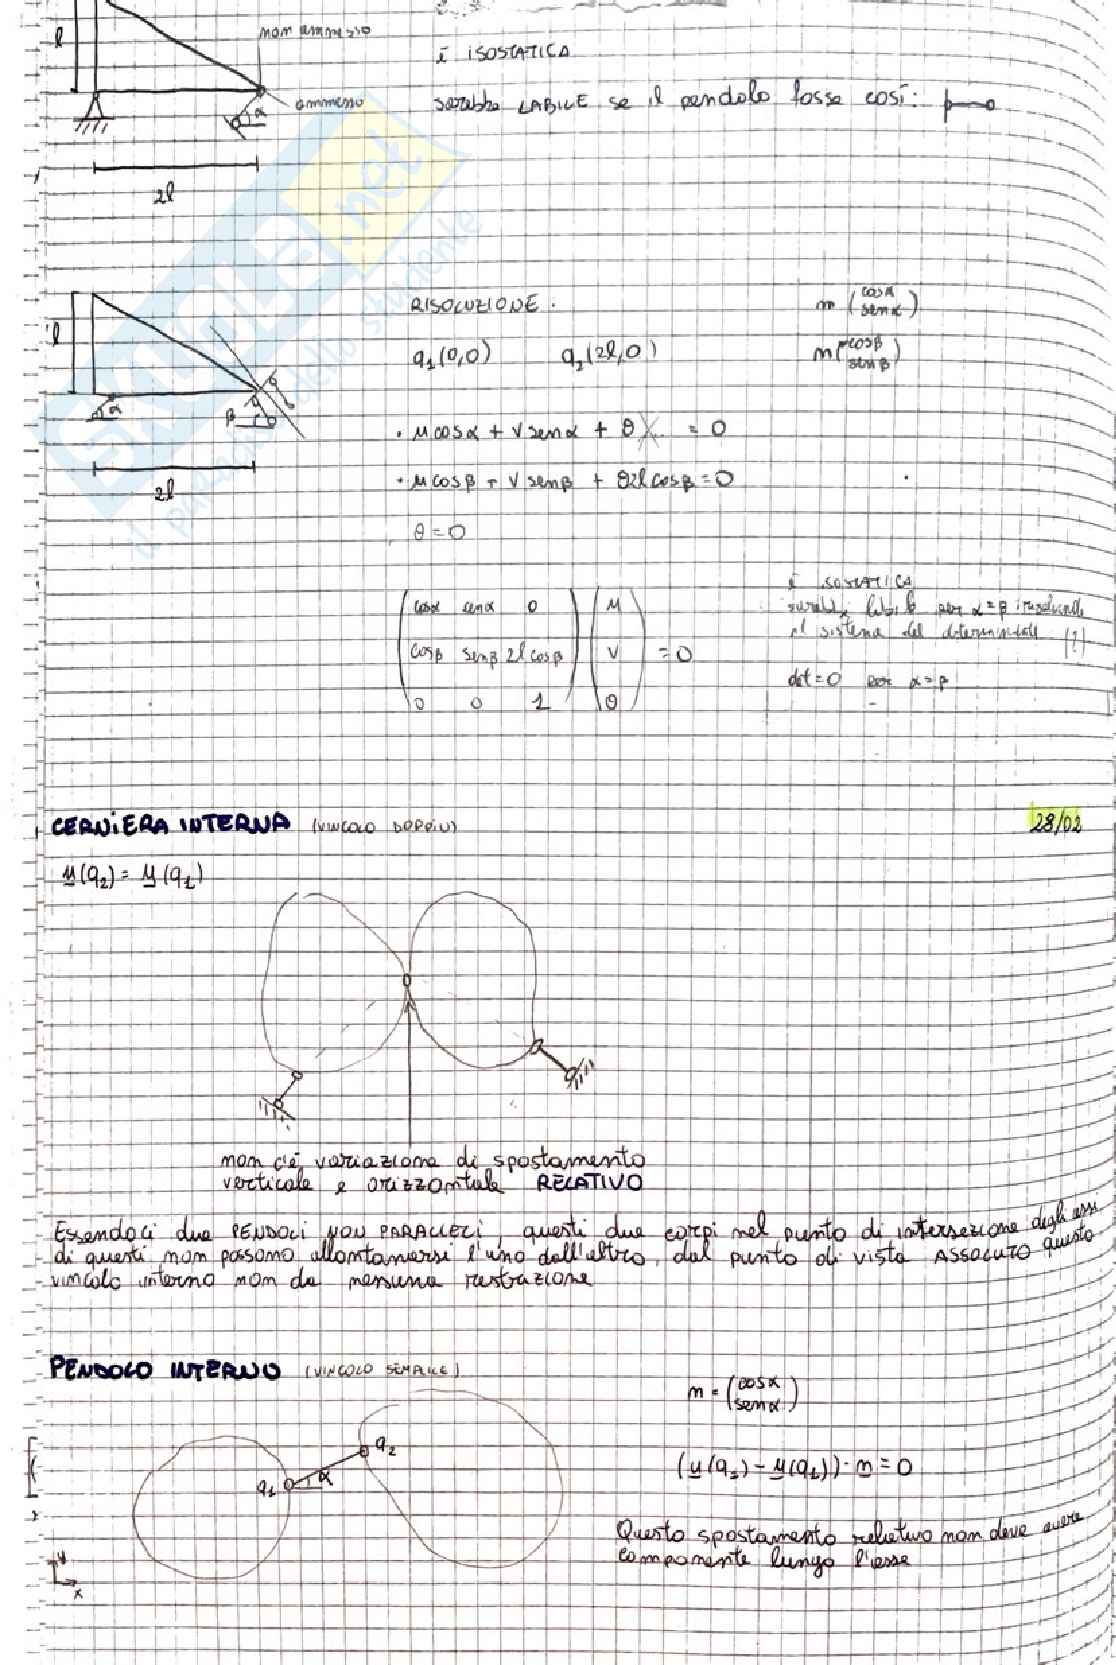 l
non ammesso
è ISOSTATICA
ammesso
α
sarebbe LABILE se il pendolo fosse così:
2l
SKUOLA.net
il paradiso dello studente
l
RISOLUZIONE.
n (cosα
senα)
q1(0,0) q2(2l,0)
n(cosβ
senβ)
α
β
2l
• u cosα + v senα + θ = 0
• u cosβ + v senβ + θ2l cosβ = 0
θ = 0
(cosα senα 0
cosβ senβ 2l cosβ
0 0 1) (u
v
θ) = 0
è ISOSTATICA
sarebbe labile per α=β
il sistema del determinante (?)
det=0 per α=β
CERNIERA INTERNA (VINCOLO DOPPIO)
28/02
u(q2) = u(q1)
non c'è variazione di spostamento
verticale e orizzontale RELATIVO
Essendoci due PENDOLI NON PARALLELI, questi due corpi nel punto di intersezione degli assi
di questi non possono allontanarsi l'uno dall'altro, dal punto di vista ASSOLUTO questo
vincolo interno non da nessuna restrazione
PENDOLO INTERNO (VINCOLO SEMPLICE)
n = (cosα
senα)
q2
q1
α
(u(q2) - u(q1)) · n = 0
Questo spostamento relativo non deve avere
componente lungo l'asse
y
x